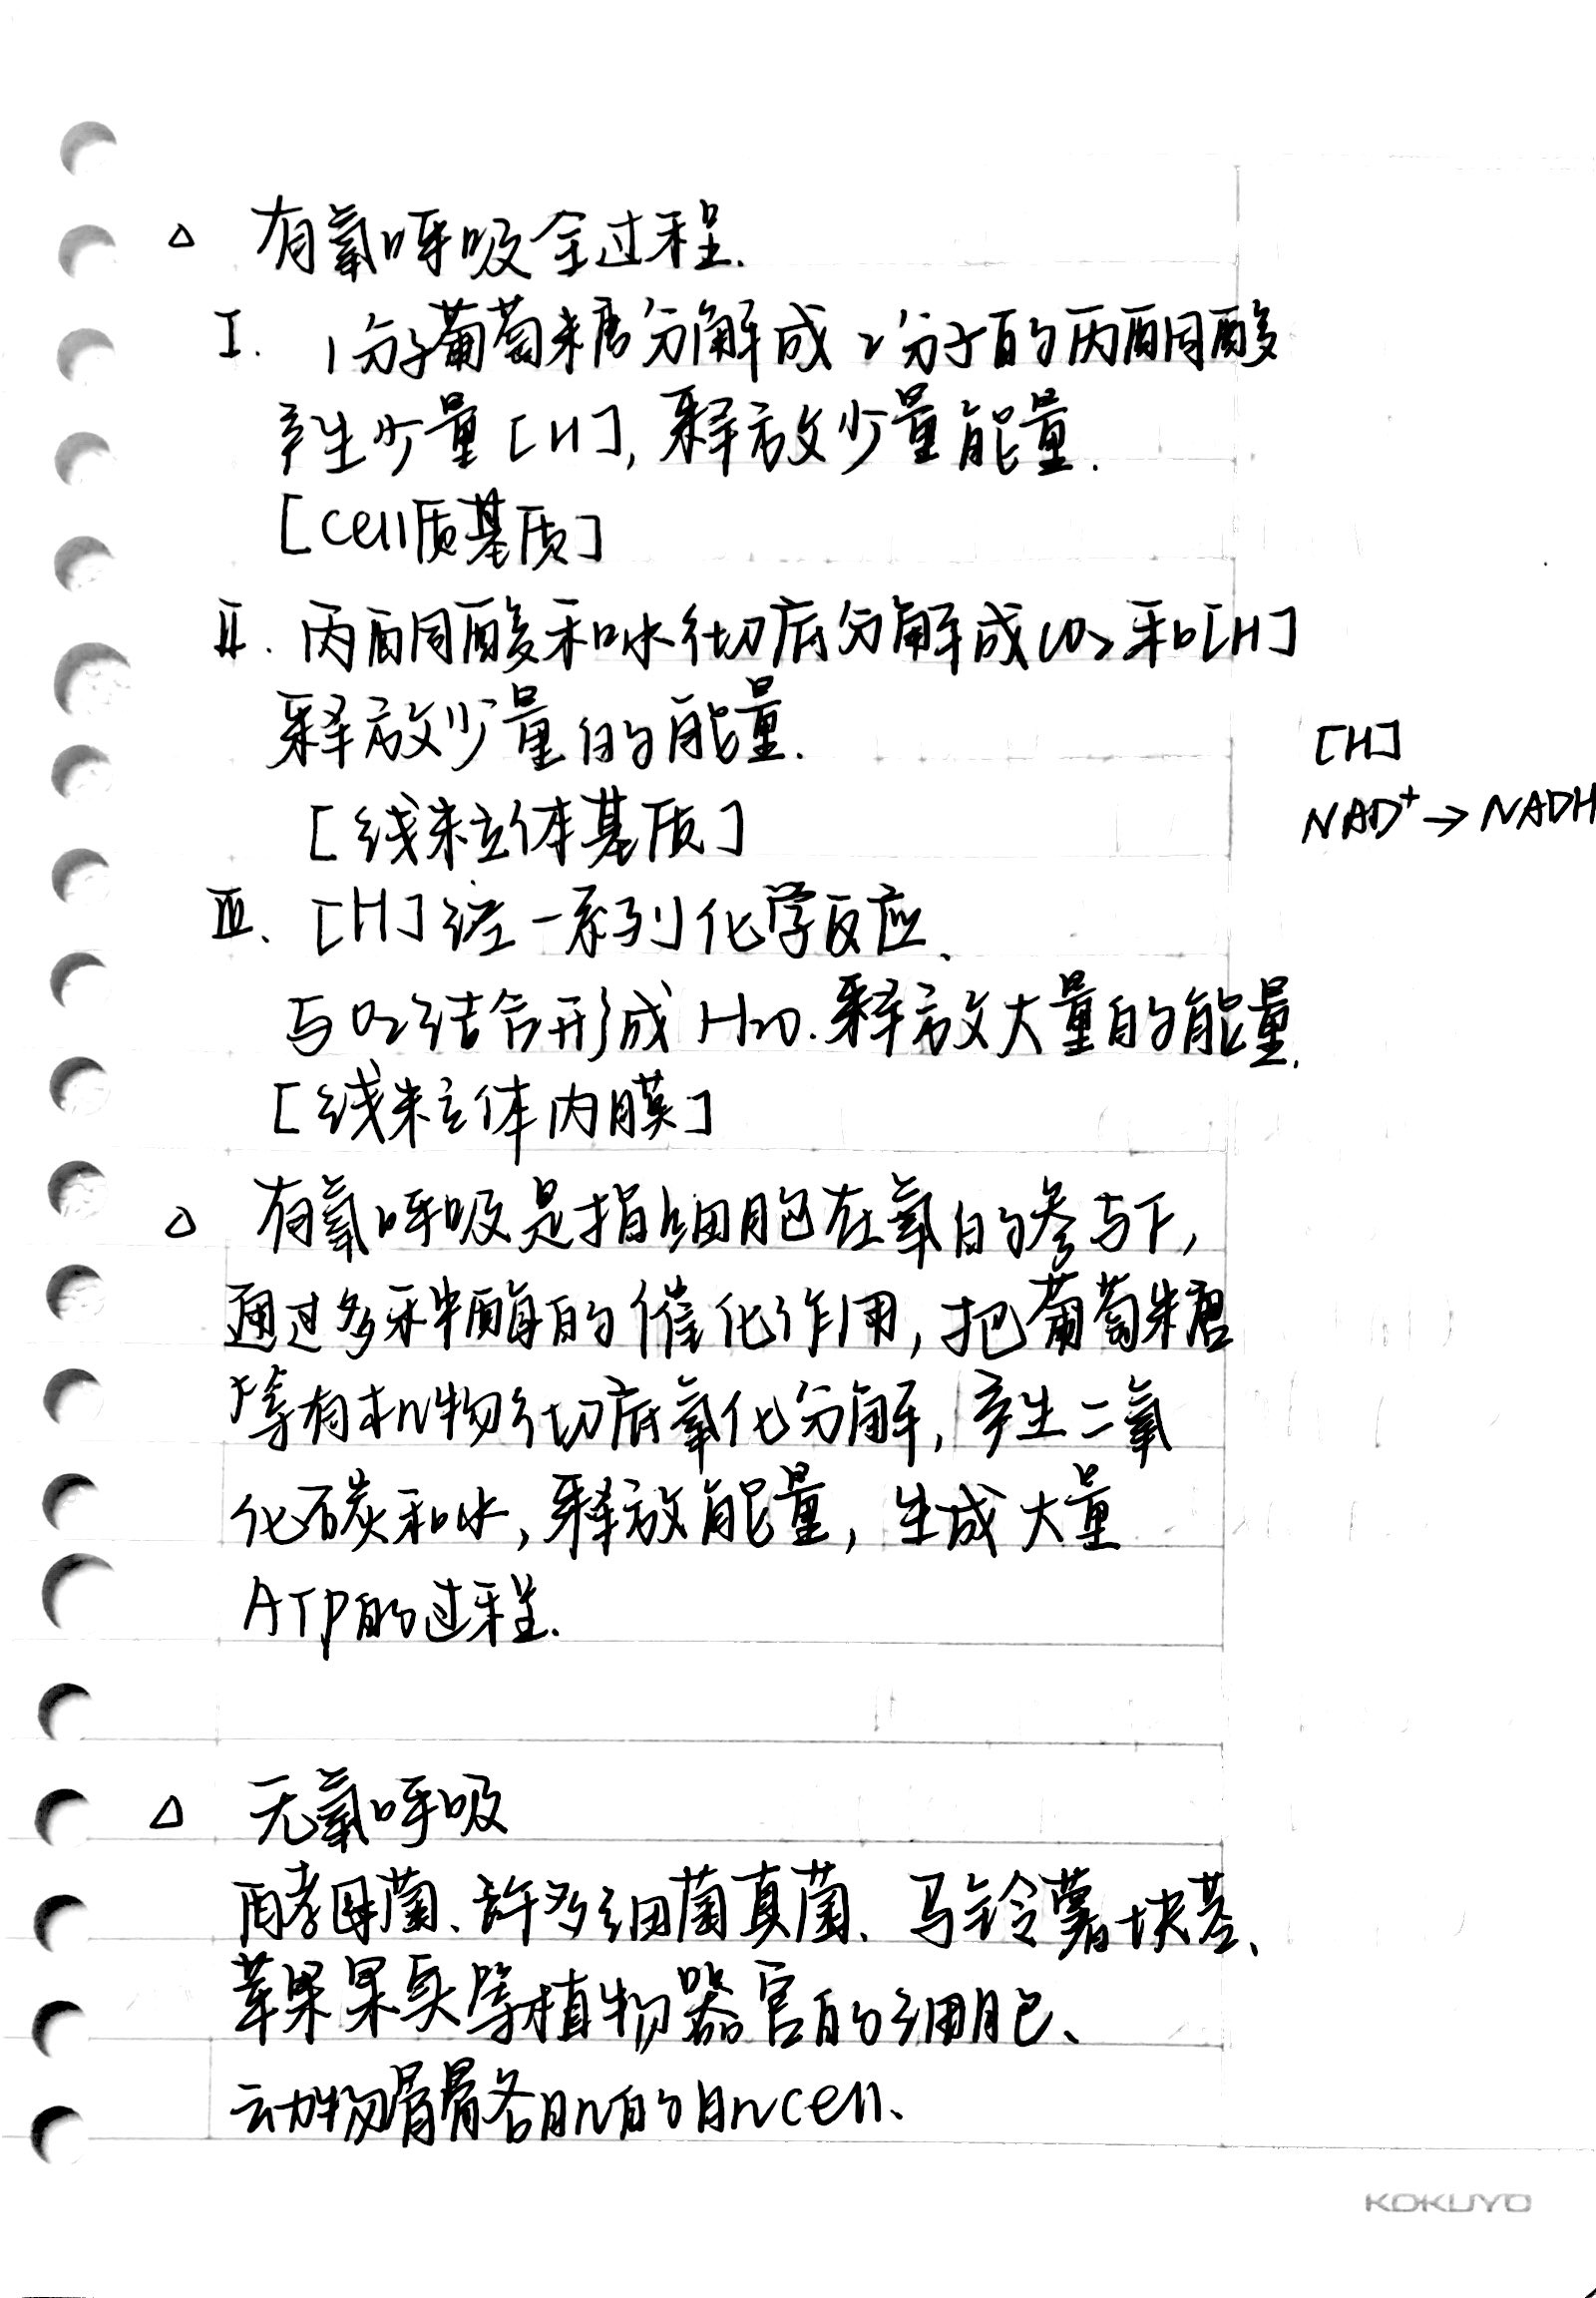 △ 有氧呼吸全过程.
I. 1分子葡萄糖分解成2分子的丙酮酸
产生少量[H],释放少量能量.
[cell质基质]
II. 丙酮酸和水彻底分解成CO₂和[H]
释放少量的能量.
[H]
NAD⁺→NADH
[线粒体基质]
III. [H]经一系列化学反应、
与O₂结合形成H₂O.释放大量的能量.
[线粒体内膜]
△ 有氧呼吸是指细胞在氧的参与下,
通过多种酶的催化作用,把葡萄糖
等有机物彻底氧化分解,产生二氧
化碳和水,释放能量,生成大量
ATP的过程.
△ 无氧呼吸
酵母菌、许多细菌真菌、马铃薯块茎、
苹果果实等植物器官的细胞、
动物骨骼肌的肌cell、
KOKUYO